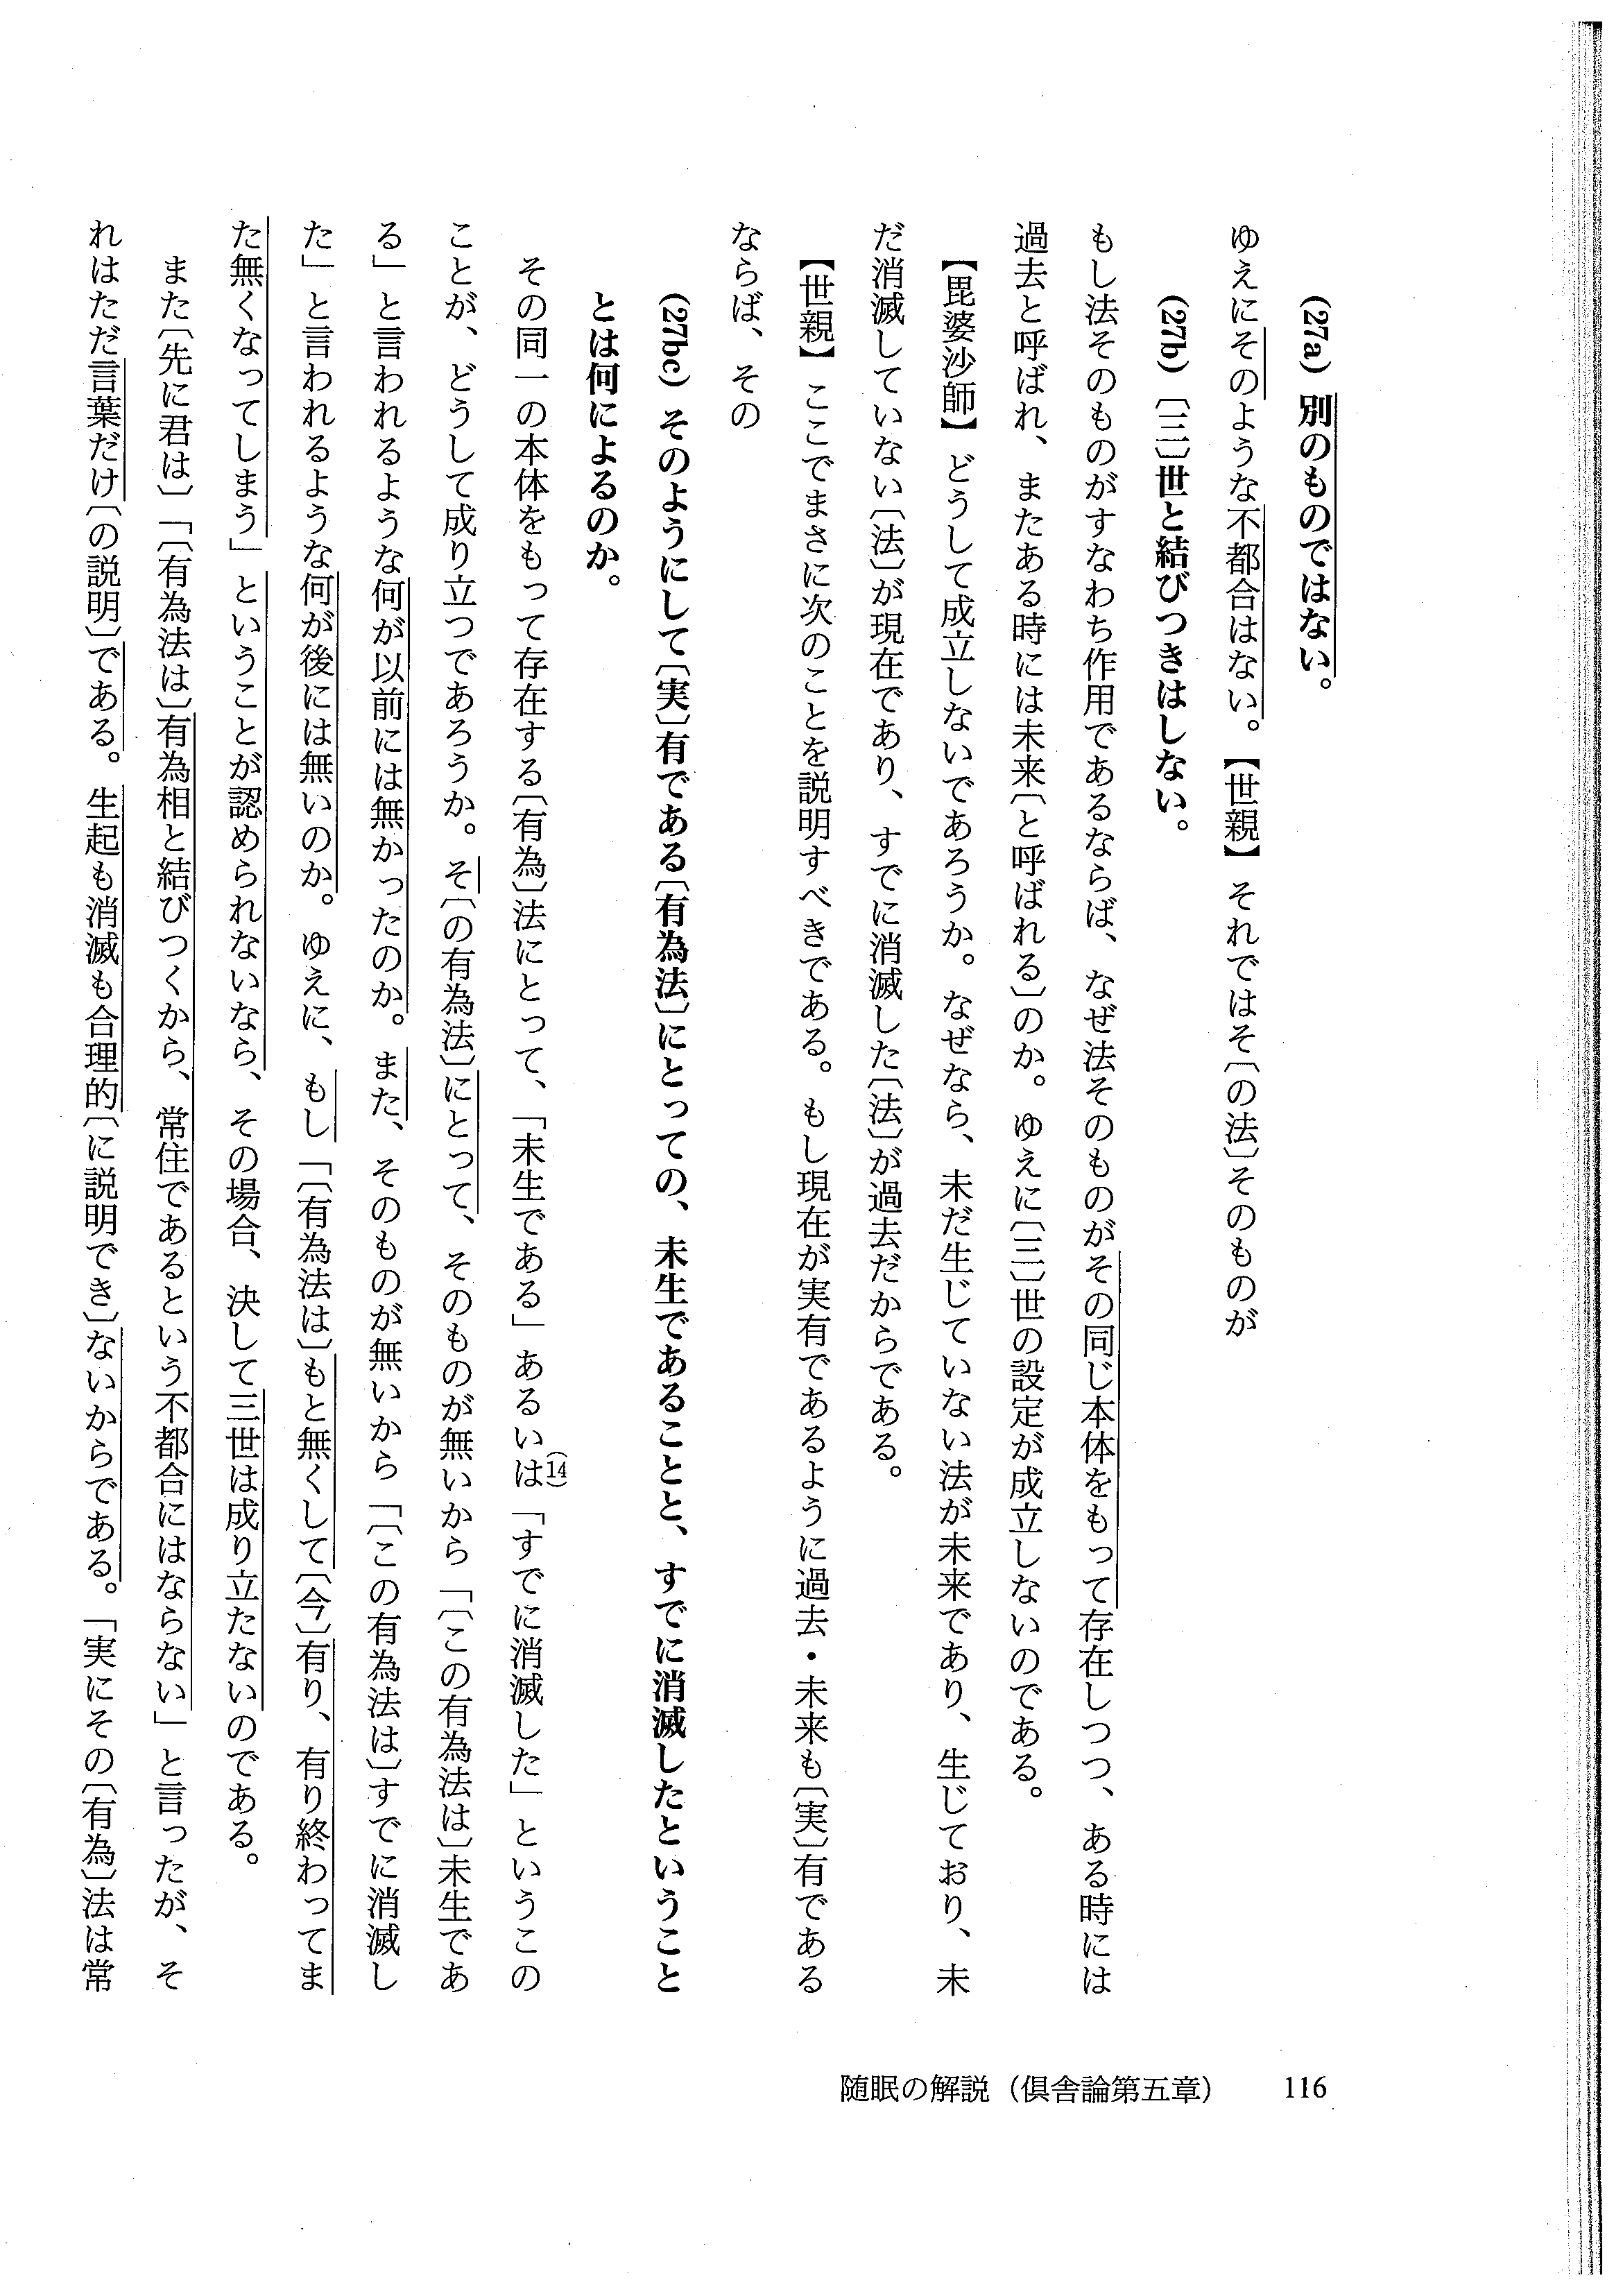 (27a) 別のものではない。
ゆえにそのような不都合はない。【世親】それではそ〔の法〕そのものが
(27b) 〔三〕世と結びつきはしない。
もし法そのものがすなわち作用であるならば、なぜ法そのものがその同じ本体をもって存在しつつ、ある時には
過去と呼ばれ、またある時には未来〔と呼ばれる〕のか。ゆえに〔三〕世の設定が成立しないのである。
【毘婆沙師】どうして成立しないであろうか。なぜなら、未だ生じていない法が未来であり、生じており、未
だ消滅していない〔法〕が現在であり、すでに消滅した〔法〕が過去だからである。
【世親】ここでまさに次のことを説明すべきである。もし現在が実有であるように過去・未来も〔実〕有である
ならば、その
(27bc) そのようにして〔実〕有である〔有為法〕にとっての、未生であることと、すでに消滅したということ
とは何によるのか。
その同一の本体をもって存在する〔有為〕法にとって、「未生である」あるいは(14)「すでに消滅した」というこの
ことが、どうして成り立つであろうか。そ〔の有為法〕にとって、そのものが無いから「〔この有為法は〕未生であ
る」と言われるような何が以前には無かったのか。また、そのものが無いから「〔この有為法は〕すでに消滅し
た」と言われるような何が後には無いのか。ゆえに、もし「〔有為法は〕もと無くして〔今〕有り、有り終わってま
た無くなってしまう」ということが認められないなら、その場合、決して三世は成り立たないのである。
また〔先に君は〕「〔有為法は〕有為相と結びつくから、常住であるという不都合にはならない」と言ったが、そ
れはただ言葉だけ〔の説明〕である。生起も消滅も合理的〔に説明でき〕ないからである。「実にその〔有為〕法は常
随眠の解説（倶舎論第五章） 116